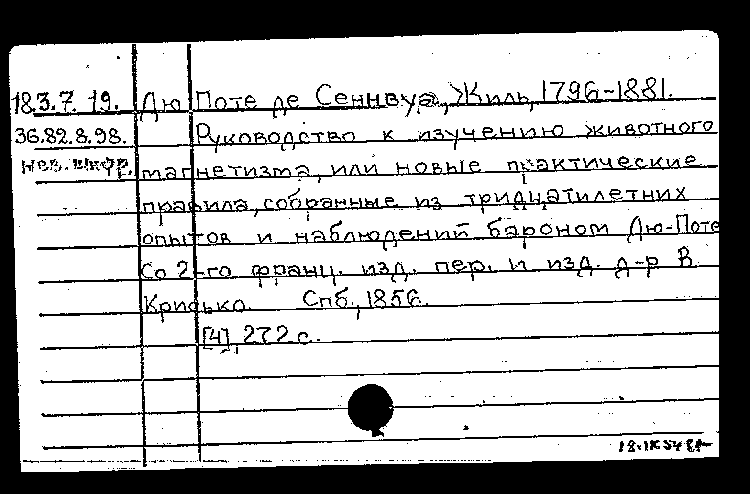 18.3.7.19. Дю Поте де Сеннвуа, Жиль, 1796-1881.
36.82.8.98. Руководство к изучению животного
магнетизма, или новые практические
правила, собранные из тридцатилетних
опытов и наблюдений бароном Дю-Поте
Со 2-го франц. изд. пер. и изд. д-р В.
Крисько. Спб., 1856.
[4], 272 с.